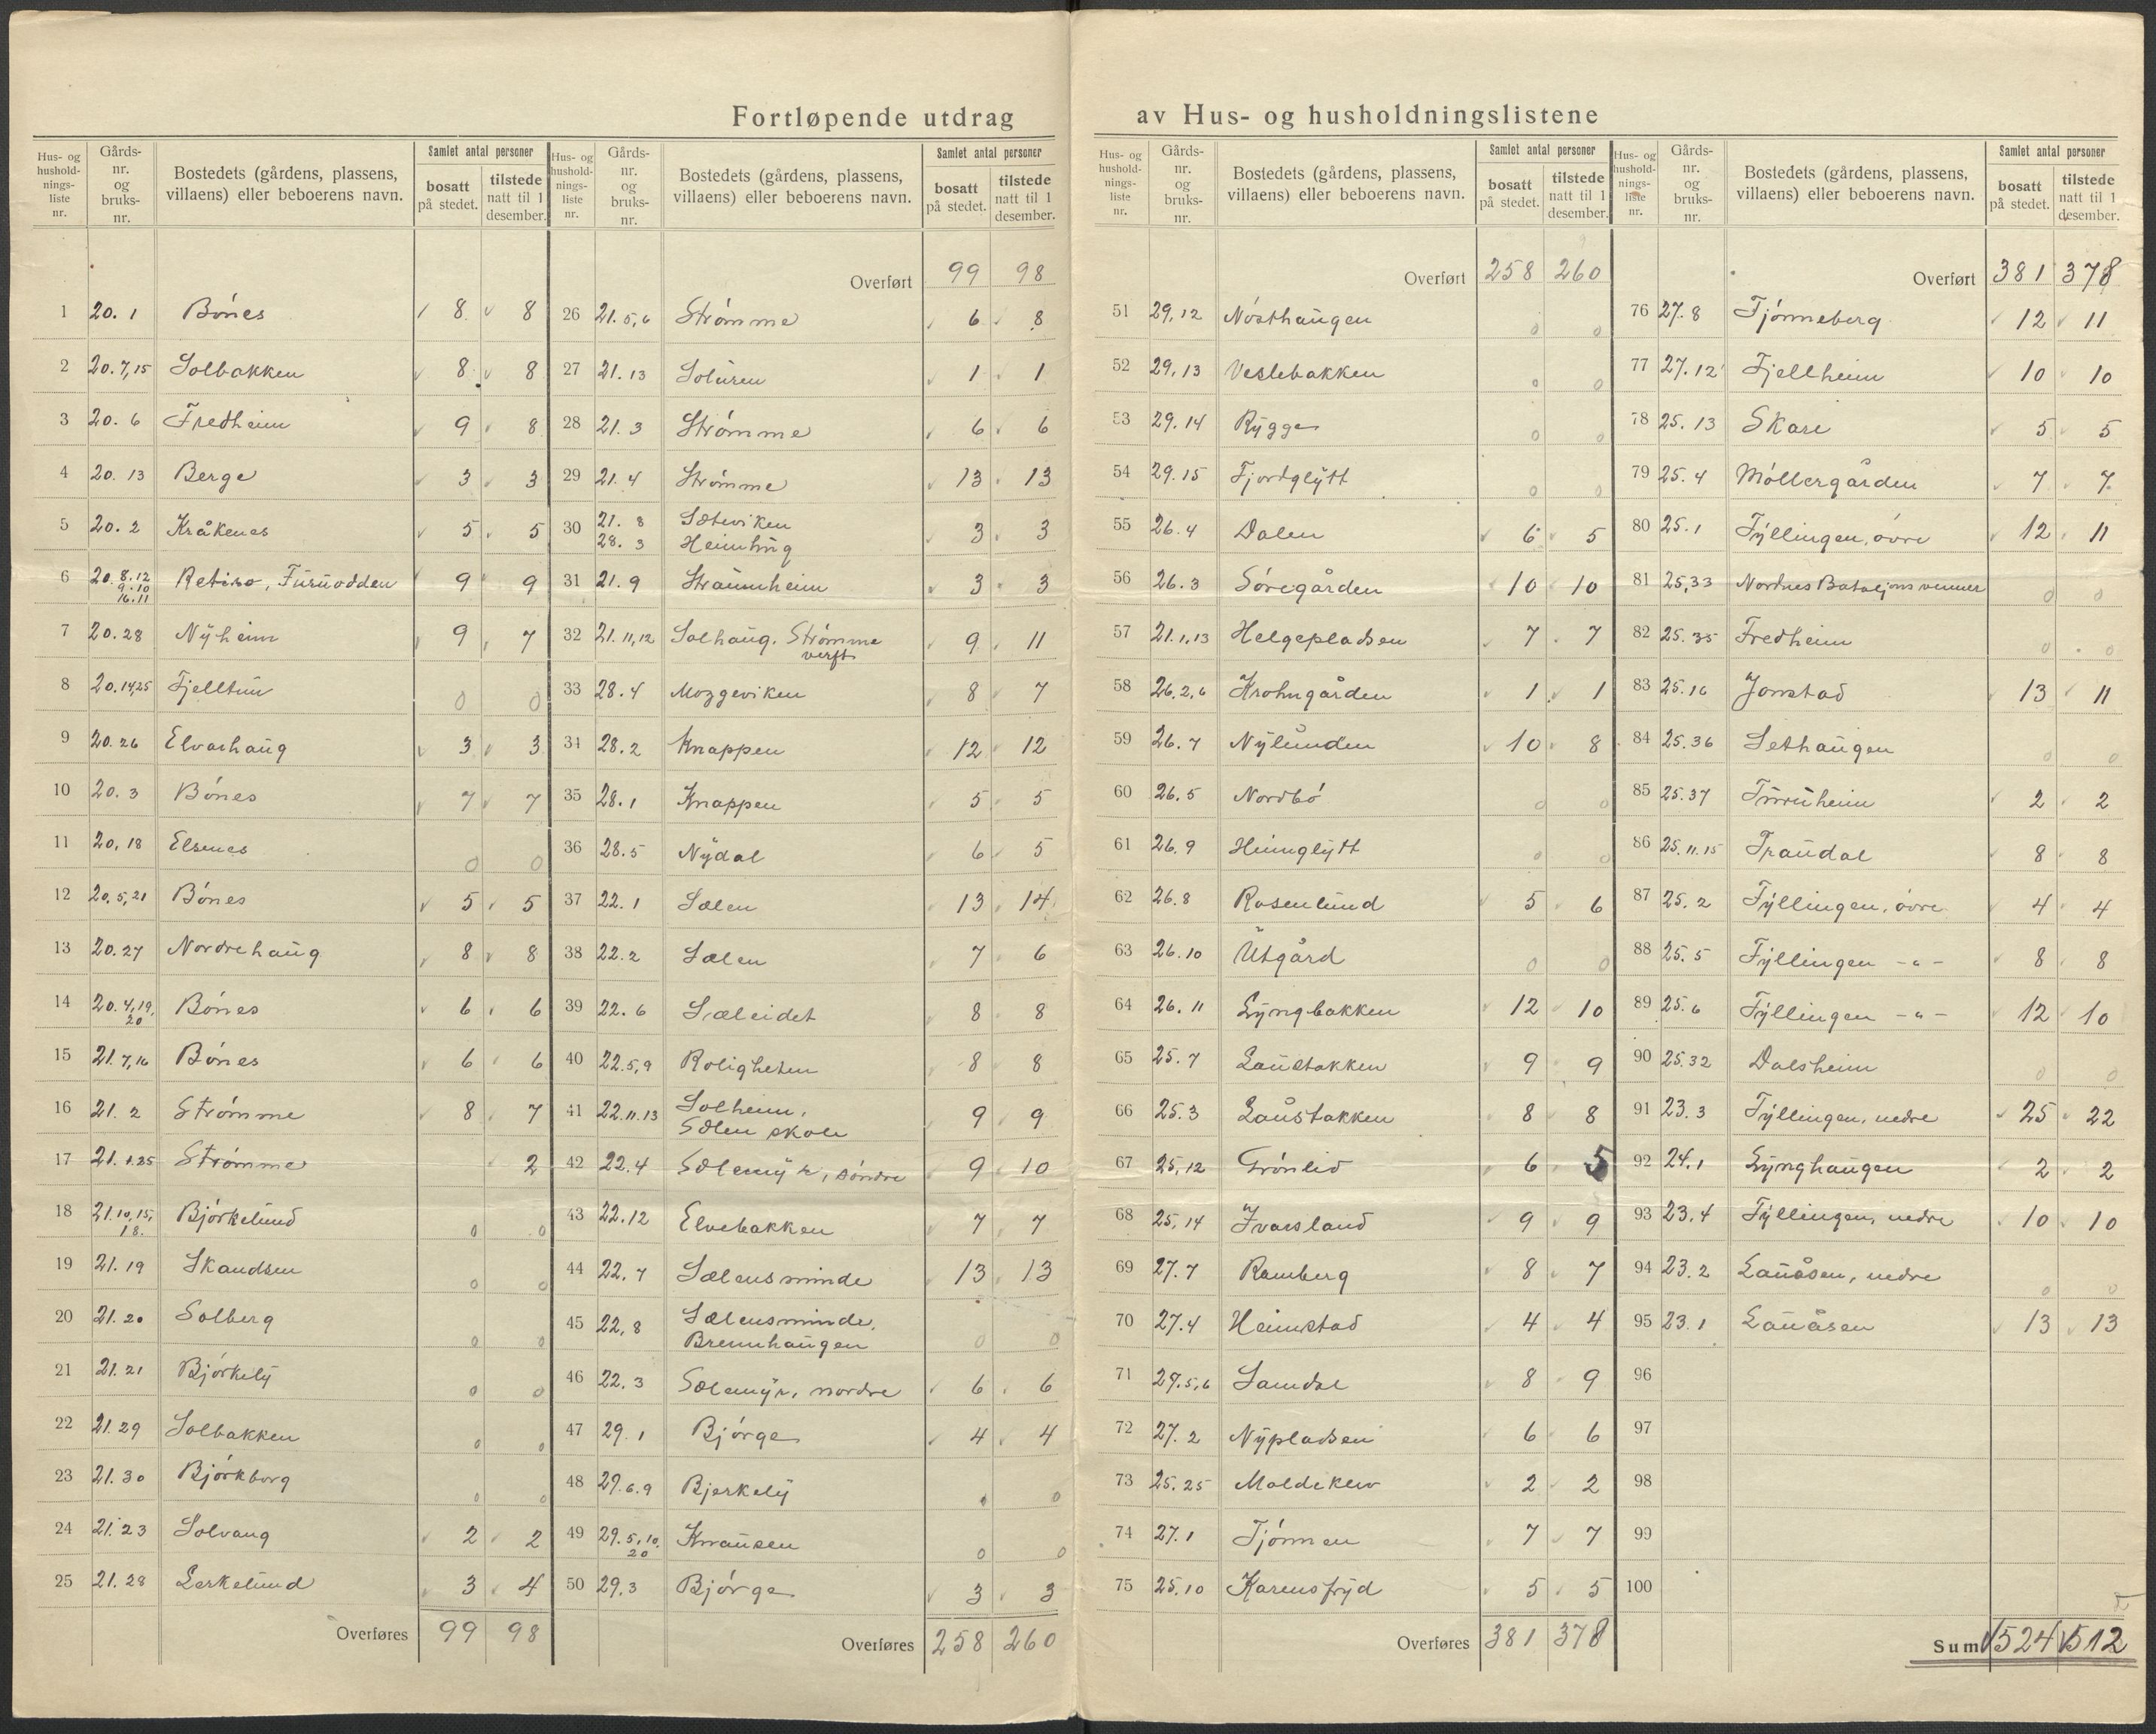 Fortløpende utdrag av Hus- og husholdningslistene
Hus- og husholdningsliste nr. | Gårdsnr. og bruksnr. | Bostedets (gårdens, plassens, villaens) eller beboerens navn. | Samlet antal personer: bosatt på stedet. | tilstede natt til 1 desember.
1 20.1 Bónes 8 8
2 20.7,15 Solbakken 8 8
3 20.6 Fredheim 9 8
4 20.13 Berge 3 3
5 20.2 Kråkenes 5 5
6 20.8.12 9.10 16.11 Retiro, Furuodden 9 9
7 20.28 Nyheim 9 7
8 20.14,25 Fjelltun 0 0
9 20.26 Elvarhaug 3 3
10 20.3 Bónes 7 7
11 20.18 Elsenes 0 0
12 20.5,21 Bónes 5 5
13 20.27 Nordrehaug 8 8
14 20.4,19, 20 Bónes 6 6
15 21.7,16 Bónes 6 6
16 21.2 Strómme 8 7
17 21.1.25 Strómme 2
18 21.10,15, 18. Bjórkelund 0 0
19 21.19 Skandsen 0 0
20 21.20 Solberg 0 0
21 21.21 Bjórkely 0 0
22 21.29 Solbakken 0 0
23 21.30 Bjórkborg 0 0
24 21.23 Solvang 2 2
25 21.28 Lerkelund 3 4
Overføres 99 98
Hus- og husholdningsliste nr. | Gårdsnr. og bruksnr. | Bostedets (gårdens, plassens, villaens) eller beboerens navn. | Samlet antal personer: bosatt på stedet. | tilstede natt til 1 desember.
Overført 99 98
26 21.5,6 Strómme 6 8
27 21.13 Soluren 1 1
28 21.3 Strómme 6 6
29 21.4 Strómme 13 13
30 21.8 Sæteviken
28.3 Heimhug 3 3
31 21.9 Straumheim 3 3
32 21.11,12 Solhaug. Strómme verft 9 11
33 28.4 Mozgeviken 8 7
34 28.2 Knappen 12 12
35 28.1 Knappen 5 5
36 28.5 Nydal 6 5
37 22.1 Sælen 13 14
38 22.2 Sælen 7 6
39 22.6 Sæleidet 8 8
40 22.5,9 Roligheten 8 8
41 22.11.13 Solheim,
Sælen skole 9 9
42 22.4 Sælemyr, sóndre 9 10
43 22.12 Elvebakken 7 7
44 22.7 Sælensminde 13 13
45 22,8 Sælensminde,
Brennhaugen 0 0
46 22.3 Sælemyr, nordre 6 6
47 29.1 Bjórge 4 4
48 29.6.9 Bjerkely 0 0
49 29.5,10, 20 Knausen 0 0
50 29.3 Bjórge 3 3
Overføres 258 260
Hus- og husholdningsliste nr. | Gårdsnr. og bruksnr. | Bostedets (gårdens, plassens, villaens) eller beboerens navn. | Samlet antal personer: bosatt på stedet. | tilstede natt til 1 desember.
Overført 258 260
51 29,12 Nósthaugen 0 0
52 29,13 Veslebakken 0 0
53 29.14 Rygge 0 0
54 29.15 Fjordglytt 0 0
55 26.4 Dalen 6 5
56 26.3 Sóregården 10 10
57 21.1,13 Helgepladsen 7 7
58 26.2,6 Krohngården 1 1
59 26.7 Nylunden 10 8
60 26.5 Nordbó 0 0
61 26.9 Heimglytt 0 0
62 26.8 Rosenlund 5 6
63 26.10 Utgård 0 0
64 26.11 Lyngbakken 12 10
65 25.7 Laustakken 9 9
66 25.3 Laustakken 8 8
67 25,12 Grónlid 6 5
68 25,14 Ivarsland 9 9
69 27.7 Ramberg 8 7
70 27.4 Heimstad 4 4
71 27.5,6 Samdal 8 9
72 27.2 Nypladsen 6 6
73 25.25 Moldeklev 2 2
74 27.1 Tjónnen 7 7
75 25.10 Karensfryd 5 5
Overføres 381 378
Hus- og husholdningsliste nr. | Gårdsnr. og bruksnr. | Bostedets (gårdens, plassens, villaens) eller beboerens navn. | Samlet antal personer: bosatt på stedet. | tilstede natt til 1 desember.
Overført 381 378
76 27.8 Tjónneberg 12 11
77 27.12 Fjellheim 10 10
78 25.13 Skare 5 5
79 25.4 Móllergården 7 7
80 25.1 Fyllingen, óvre 12 11
81 25,33 Nordnes Bataljons venner 0 0
82 25.35 Fredheim 0 0
83 25.16 Jonstad 13 11
84 25.36 Lethaugen 0 0
85 25.37 Furuheim 2 2
86 25.11.15 Traudal 8 8
87 25.2 Fyllingen, óvre 4 4
88 25.5 Fyllingen -"- 8 8
89 25.6 Fyllingen -"- 12 10
90 25.32 Dalsheim 0 0
91 23.3 Fyllingen, nedre 25 22
92 24.1 Lynghaugen 2 2
93 23.4 Fyllingen, nedre 10 10
94 23.2 Lauåsen, nedre 0 0
95 23.1 Lauåsen 13 13
96
97
98
99
100
Sum 524 512